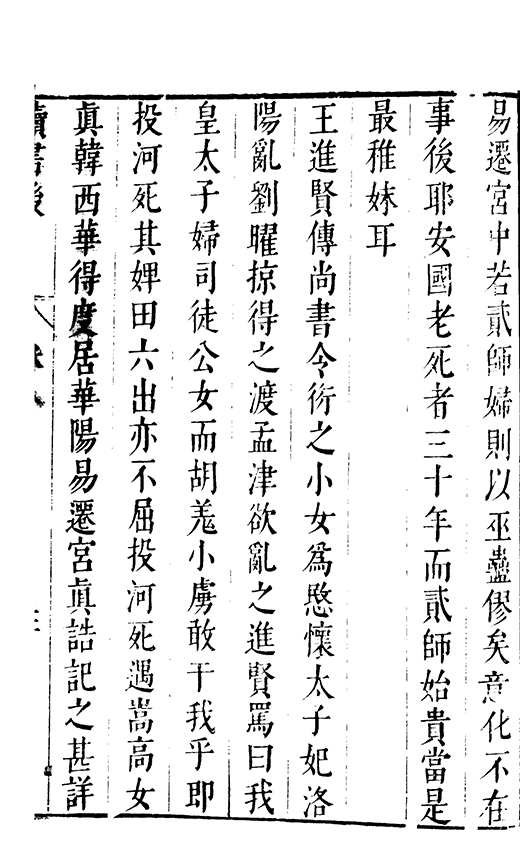 易遷宮中若貳師婦則以巫蠱僇矣意化不在
事後耶安國老死者三十年而貳師始貴當是
最稚妹耳
王進賢傳尚書令衍之小女為愍懷太子妃洛
陽亂劉曜掠得之渡孟津欲亂之進賢罵曰我
皇太子婦司徒公女而胡羌小虜敢干我乎即
投河死其婢田六出亦不屈投河死遇嵩高女
眞韓西華得度居華陽易遷宮眞誥記之甚詳
讀書後